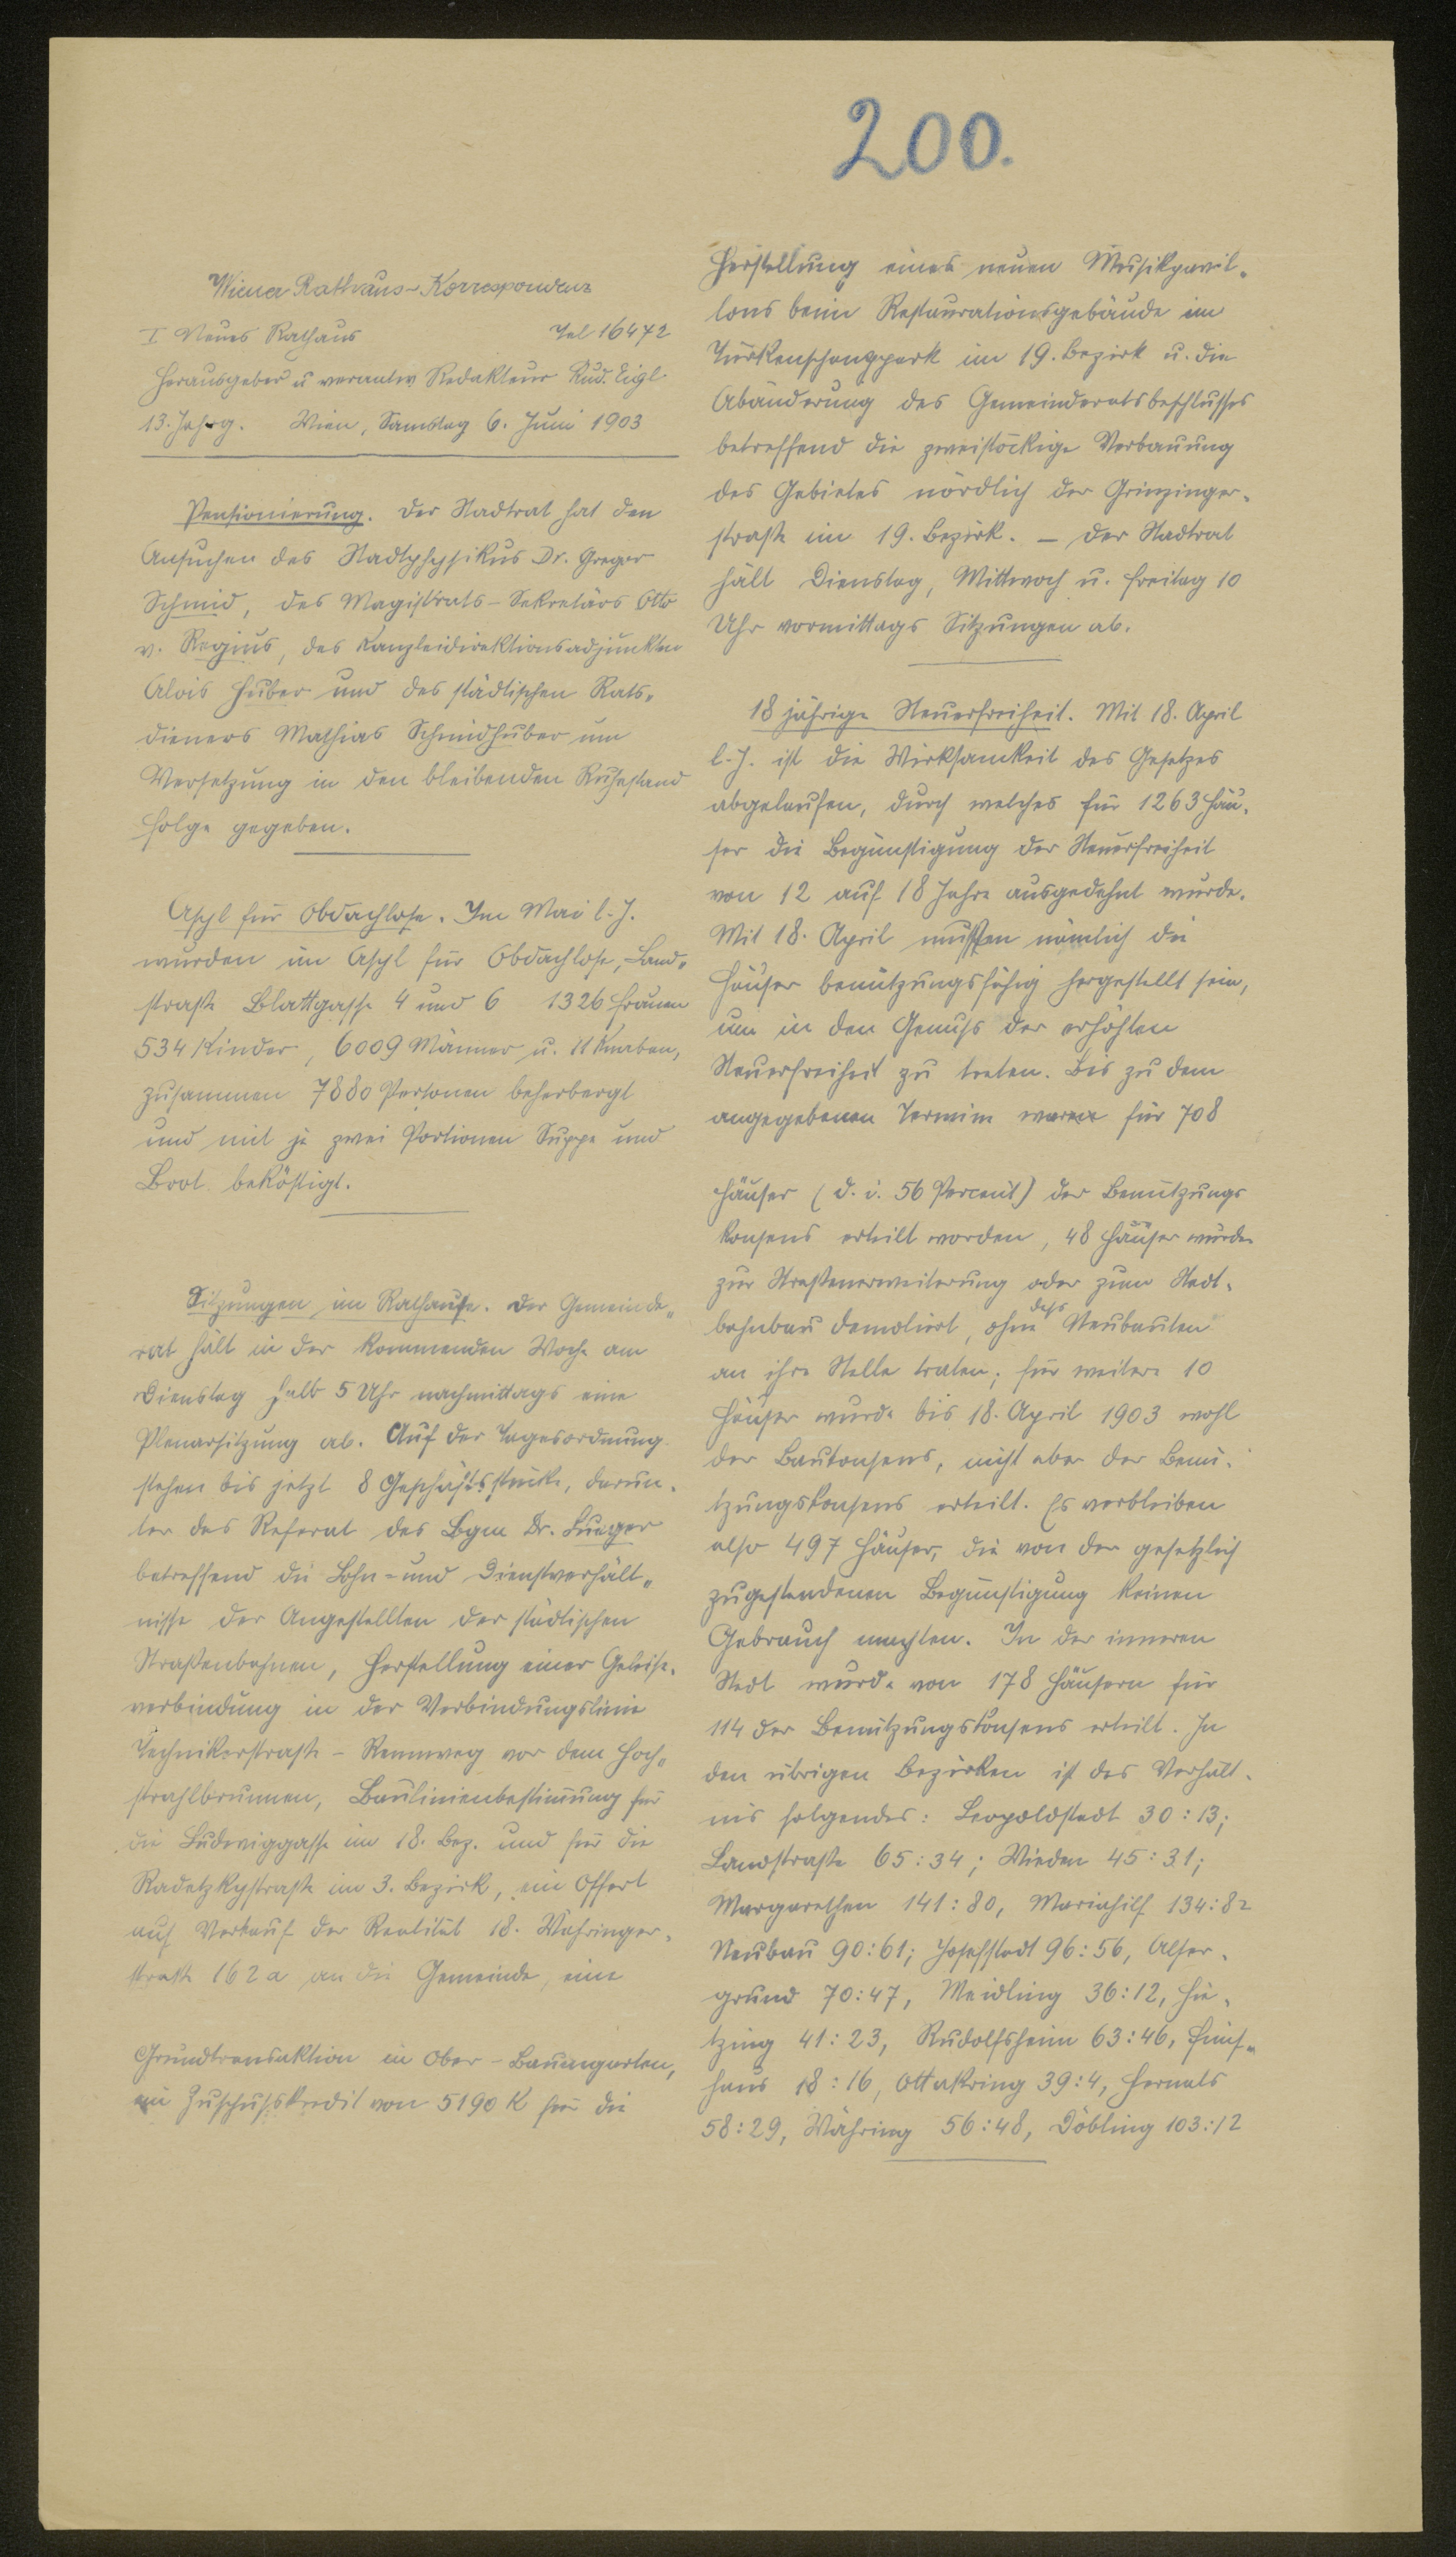 200.
Wiener Rathaus-Korrespondenz
I Neues Rathaus Tel 16472
Herausgeber u verantw Redakteur Rud. Eigl
13. Jahrg. Wien, Samstag 6. Juni 1903
Pensionierung. Der Stadtrat hat den
Ansuchen des Stadtphysikus Dr. Gregor
Schmid, des Magistrats-Sekretärs Otto
v. Regius, des Kanzleidirektionsadjunkten
Alois Huber und des städtischen Rats-
dieners Mathias Schmidhuber um
Versetzung in den bleibenden Ruhestand
Folge gegeben.
Asyl für Obdachlose. Im Mai l. J.
wurden im Asyl für Obdachlose, Land-
straße Blattgasse 4 und 6 1326 Frauen
534 Kinder, 6009 Männer u. 11 Knaben,
zusammen 7880 Personen beherbergt
und mit je zwei Portionen Suppe und
Brot beköstigt.
Sitzungen im Rathause. Der Gemeinde-
rat hält in der kommenden Woche am
Dienstag halb 5 Uhr nachmittags eine
Plenarsitzung ab. Auf der Tagesordnung
stehen bis jetzt 8 Geschäftsstücke, darun-
ter das Referat des Bgm Dr. Lueger
betreffend die Lohn- und Dienstverhält-
nisse der Angestellten der städtischen
Straßenbahnen, Herstellung einer Geleise-
verbindung in der Verbindungslinie
Technikerstraße - Rennweg vor dem Hoch-
strahlbrunnen, Baulinienbestimmung für
die Ludwiggasse im 18. Bez. und für die
Radetzkystraße im 3. Bezirk, ein Offert
auf Verkauf der Realität 18. Währinger-
straße 162a an die Gemeinde, eine
Grundtransaktion in Ober-Baumgarten,
ein Zuschußkredit von 5190 K für die
Herstellung eines neuen Musikpavil-
lons beim Restaurationsgebäude im
Türkenschanzpark im 19. Bezirk u. die
Abänderung des Gemeinderatsbeschlusses
betreffend die zweistöckige Verbauung
des Gebietes nördlich der Grinzinger-
straße im 19. Bezirk. - Der Stadtrat
hält Dienstag, Mittwoch u. Freitag 10
Uhr vormittags Sitzungen ab.
18 jährige Steuerfreiheit. Mit 18. April
l. J. ist die Wirksamkeit des Gesetzes
abgelaufen, durch welches für 1263 Häu-
ser die Begünstigung der Steuerfreiheit
von 12 auf 18 Jahre ausgedehnt wurde.
Mit 18. April mußten nämlich die
Häuser benützungsfähig hergestellt sein,
um in den Genuß der erhöhten
Steuerfreiheit zu treten. Bis zu dem
angegebenen Termin waren für 708
Häuser (d. i. 56 Percent) der Benützungs
konsens erteilt worden, 48 Häuser wurden
zur Straßenerweiterung oder zum Stadt-
bahnbau demoliert, ohne daß Neubauten
an ihre Stelle traten; für weitere 10
Häuser wurde bis 18. April 1903 wohl
der Baukonsens, nicht aber der Benü-
tzungskonsens erteilt. Es verbleiben
also 497 Häuser, die von der gesetzlich
zugestandenen Begünstigung keinen
Gebrauch machten. In der inneren
Stadt wurde von 178 Häusern für
114 der Benützungskonsens erteilt. In
den übrigen Bezirken ist das Verhält-
nis folgendes: Leopoldstadt 30:13;
Landstraße 65:34; Wieden 45:31;
Margarethen 141:80, Mariahilf 134:82
Neubau 90:61; Josefstadt 96:56, Alser-
grund 70:47, Meidling 36:12, Hie-
tzing 41:23, Rudolfsheim 63:46, Fünf-
haus 18:16, Ottakring 39:4, Hernals
58:29, Währing 56:48, Döbling 103:12